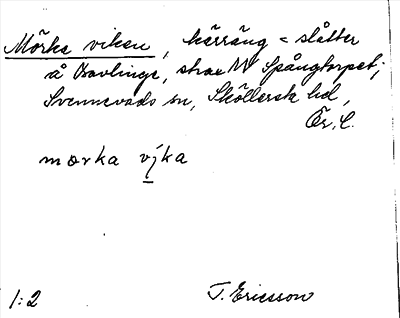 Mörka viken, kärräng = slåtter
å Bavlinge, strax N Spångtorpet;
Svennevads sn, Sköllersta hd,
Ör. l.
mœrka vjka
1:2
T. Ericsson